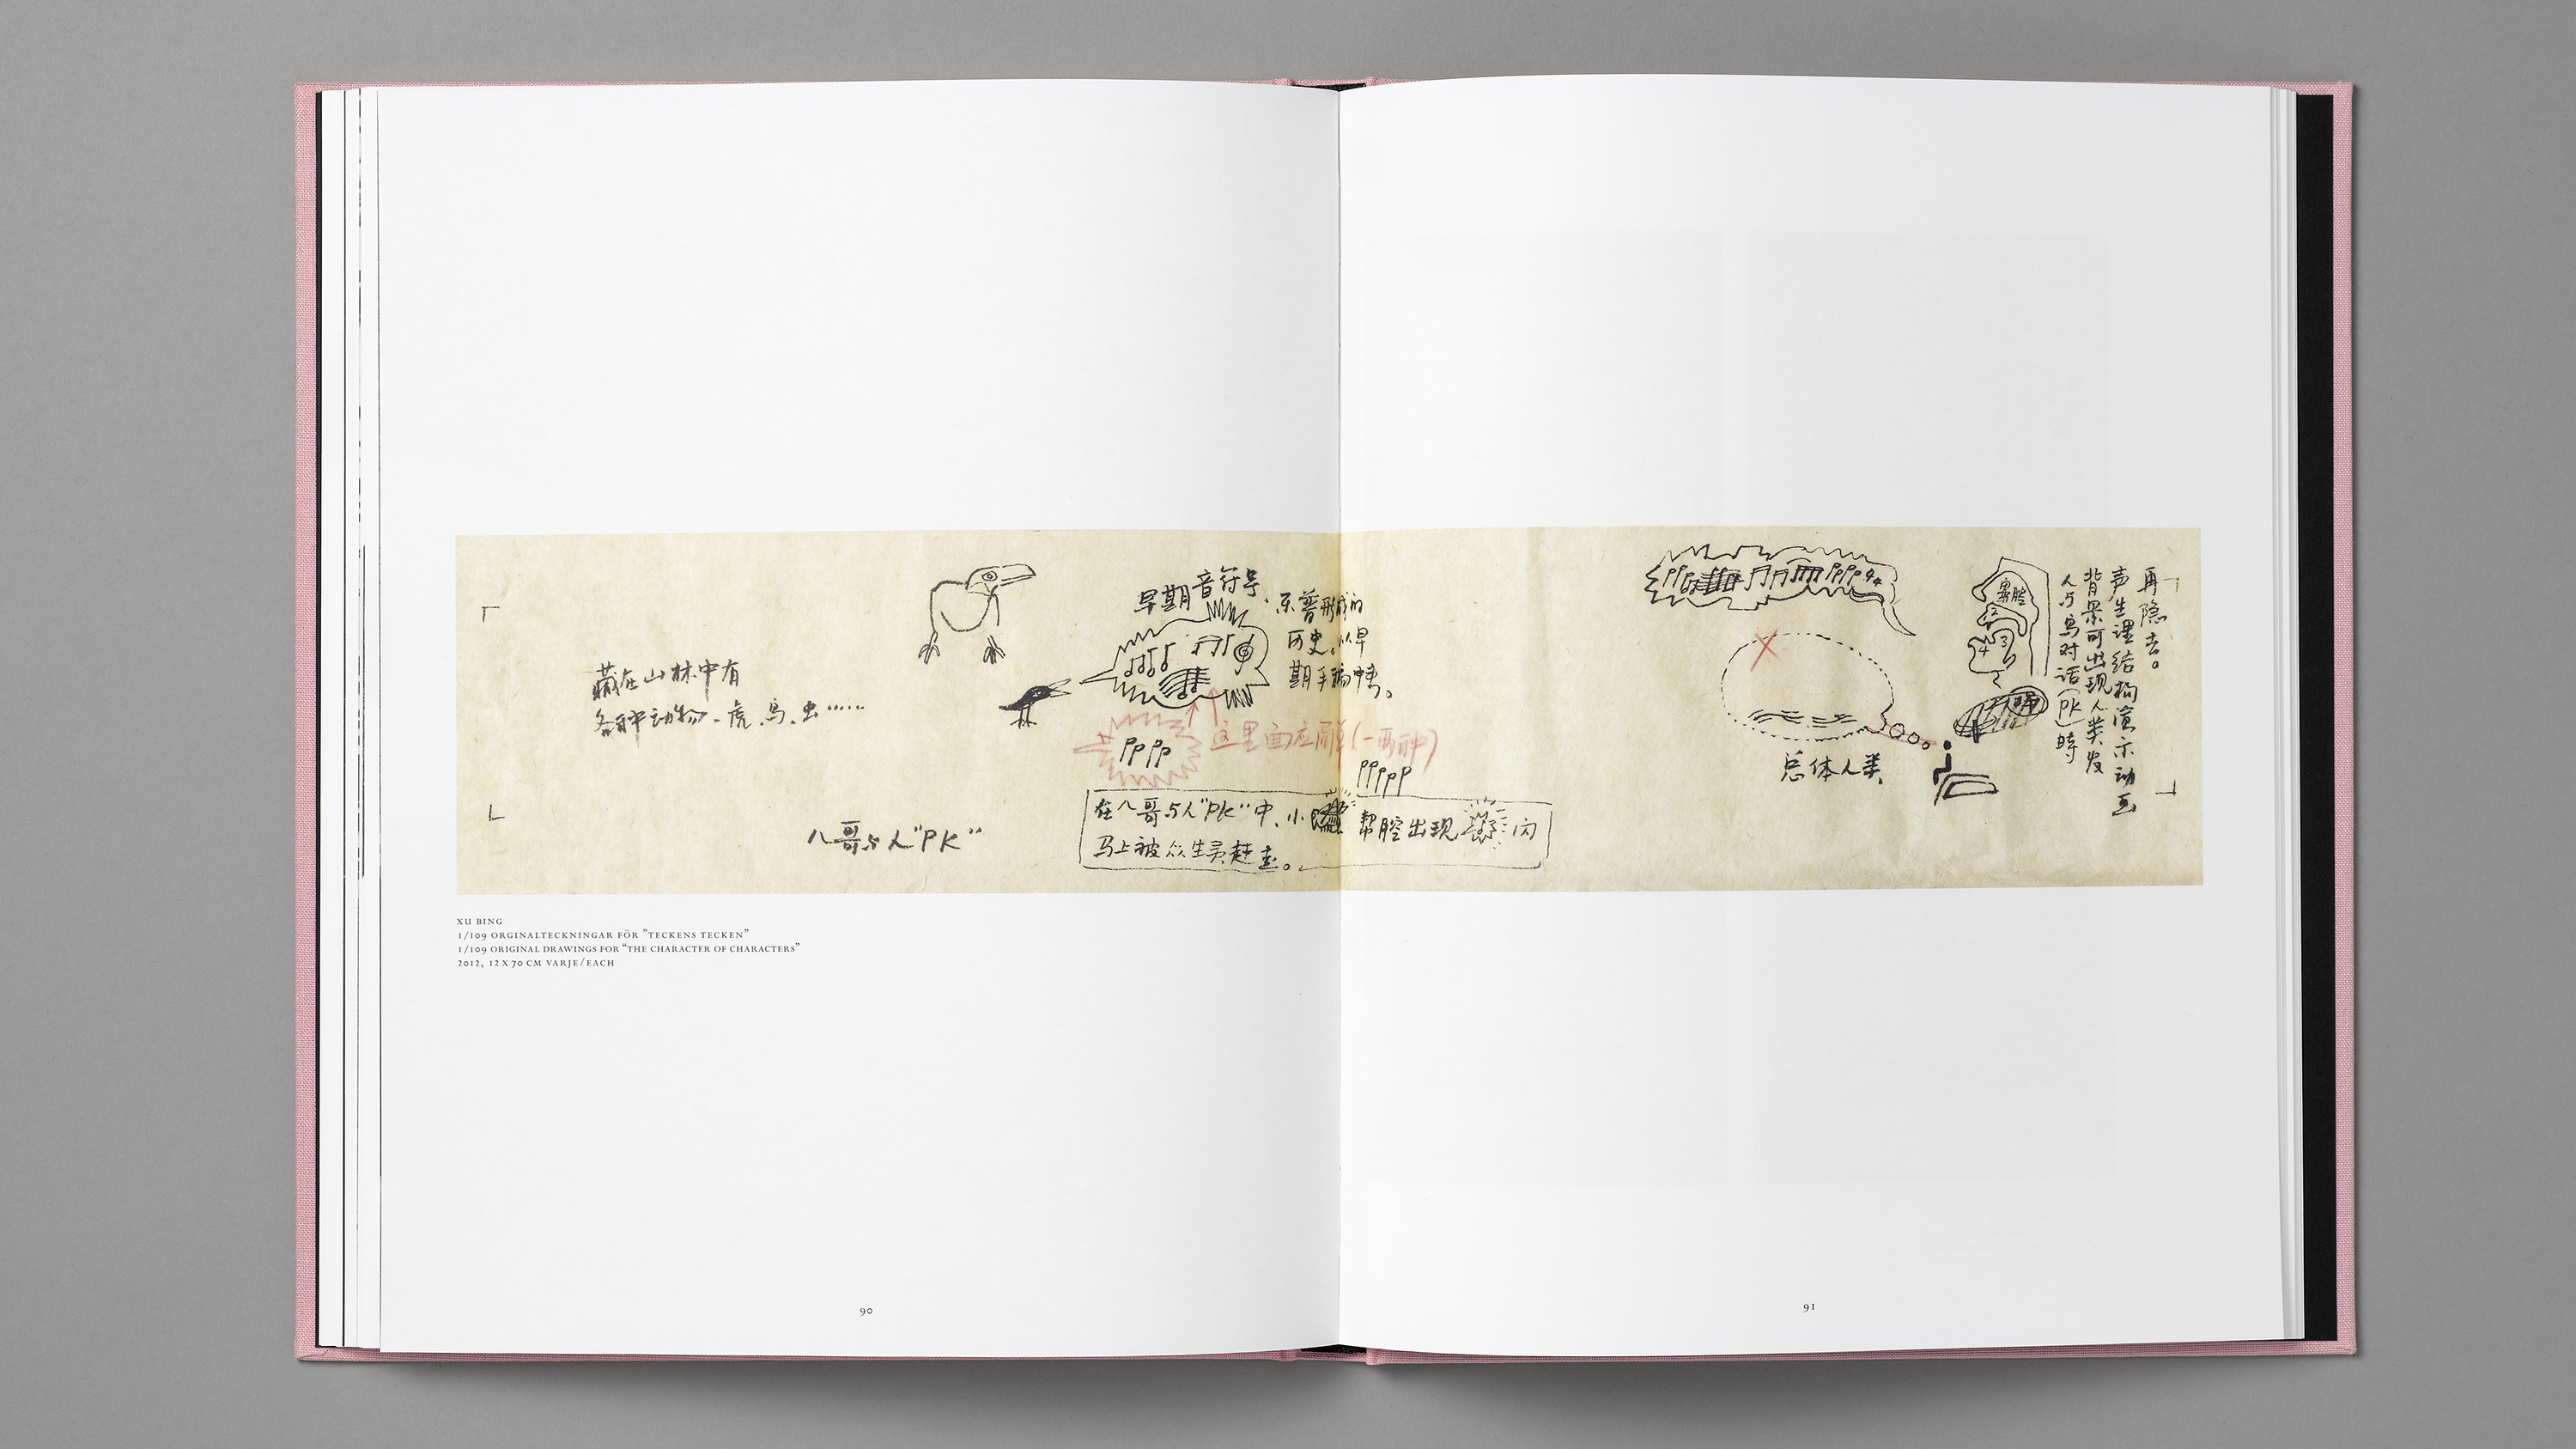 藏在山林中有
各种动物、虎、鸟、虫……
八哥与人“PK”
早期音符号、
乐普形成的
历史。以早
期手稿
PPPP
这里画应简单(一两种)
PPPPP
在八哥与人“PK”中、小
帮腔出现
闪
马上被众生灵赶走。
总体人类
鼻腔
人与鸟对话(PK)時
背景可出现人类发
声生理结构演示动画
再隐去。
XU BING
1/109 ORGINALTECKNINGAR FÖR ”TECKENS TECKEN”
1/109 ORIGINAL DRAWINGS FOR “THE CHARACTER OF CHARACTERS”
2012, 12 X 70 CM VARJE/EACH
90
91